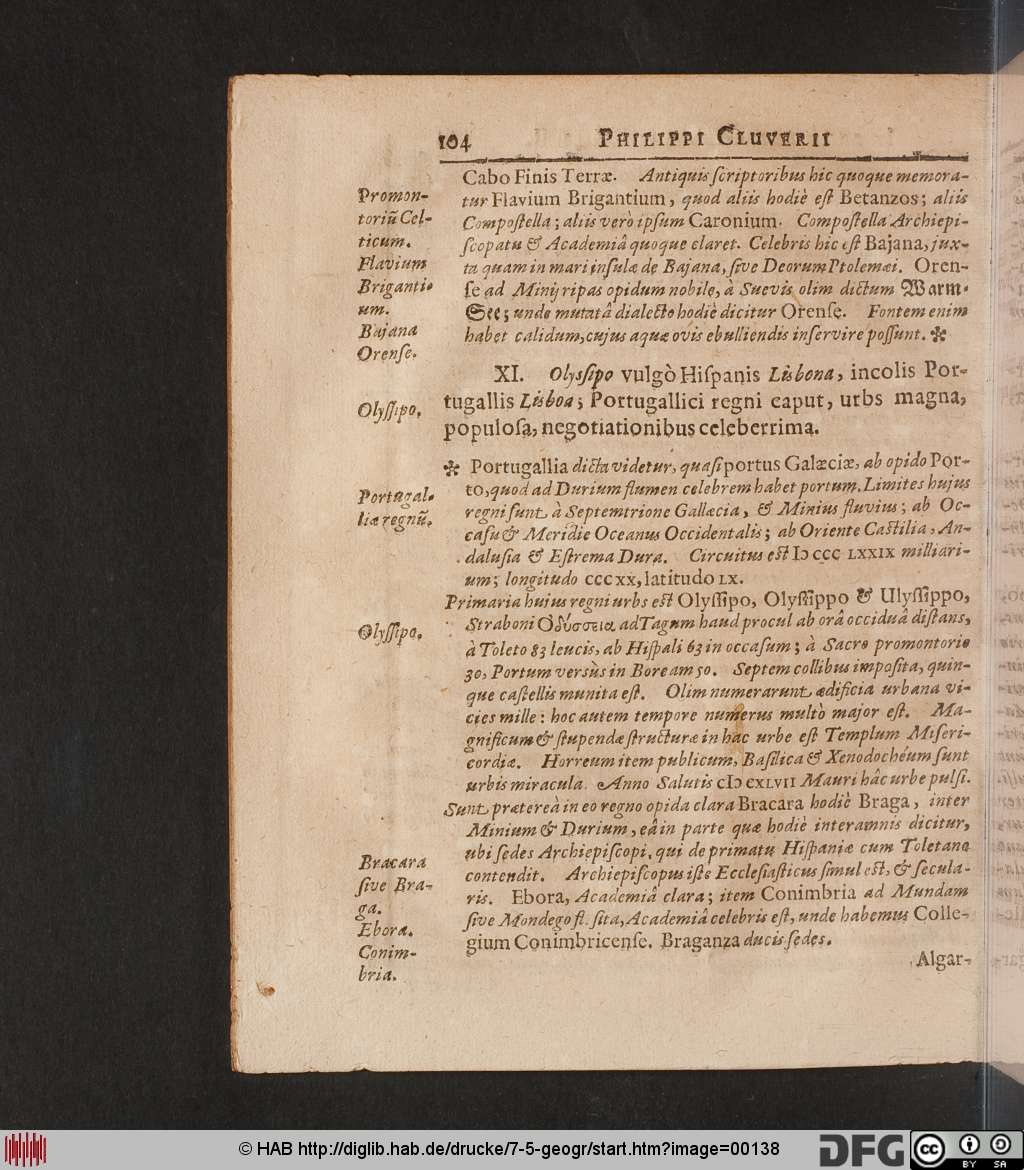 104 PHILIPPI CLUVERII
Cabo Finis Terræ. Antiquis ſcriptoribus hic quoque memora-
tur Flavium Brigantium, quod aliis hodiè eſt Betanzos; aliis
Compoſtella; aliis verò ipſum Caronium. Compoſtella Archiepi-
ſcopatu & Academiâ quoque claret. Celebris hic eſt Bajana, jux-
ta quam in mari inſulæ de Bajana, ſive Deorum Ptolemæi. Oren-
ſe ad Minij ripas opidum nobile, à Suevis olim dictum Warm-
See; unde mutatâ dialecto hodiè dicitur Orenſe. Fontem enim
habet calidum, cujus aquæ ovis ebulliendis inſervire poſſunt. ✻
Promon-
toriũ Cel-
ticum.
Flavium
Briganti-
um.
Bajana
Orenſe.
XI. Olyſſipo vulgò Hiſpanis Lisbona, incolis Por-
tugallis Lisboa; Portugallici regni caput, urbs magna,
populoſa, negotiationibus celeberrima.
Olyſſipo.
✻ Portugallia dicta videtur, quaſi portus Galæciæ, ab opido Por-
to, quod ad Durium flumen celebrem habet portum. Limites hujus
regni ſunt à Septemtrione Gallæcia, & Minius fluvius; ab Oc-
caſu & Meridie Oceanus Occidentalis; ab Oriente Caſtilia, An-
daluſia & Eſtrema Dura. Circuitus eſt IↃ CCC LXXIX milliari-
um; longitudo CCCXX, latitudo LX.
Portugal-
liæ regnũ.
Primaria huius regni urbs eſt Olyſſipo, Olyſſippo & Ulyſſippo,
Straboni Ὀδύσσεια ad Tagum haud procul ab orâ occiduâ diſtans,
à Toleto 83 leucis, ab Hiſpali 63 in occaſum; à Sacro promontorio
30, Portum versùs in Boream 50. Septem collibus impoſita, quin-
que caſtellis munita eſt. Olim numerarunt ædificia urbana vi-
cies mille: hoc autem tempore numerus multò major eſt. Ma-
gnificum & ſtupendæ ſtructuræ in hac urbe eſt Templum Miſeri-
cordiæ. Horreum item publicum, Baſilica & Xenodochéum ſunt
urbis miracula. Anno Salutis CIↃ CXLVII Mauri hâc urbe pulſi.
Olyſſipo.
Sunt prætereà in eo regno opida clara Bracara hodiè Braga, inter
Minium & Durium, eâ in parte quæ hodiè interamnis dicitur,
ubi ſedes Archiepiſcopi, qui de primatu Hiſpaniæ cum Toletano
contendit. Archiepiſcopus iſte Eccleſiaſticus ſimul eſt, & ſecula-
ris. Ebora, Academiâ clara; item Conimbria ad Mundam
ſive Mondego fl. ſita, Academiâ celebris eſt, unde habemus Colle-
gium Conimbricenſe. Braganza ducis ſedes.
Bracara
ſive Bra-
ga.
Ebora.
Conim-
bria.
Algar-
© HAB http://diglib.hab.de/drucke/7-5-geogr/start.htm?image=00138
DFG
cc
BY SA